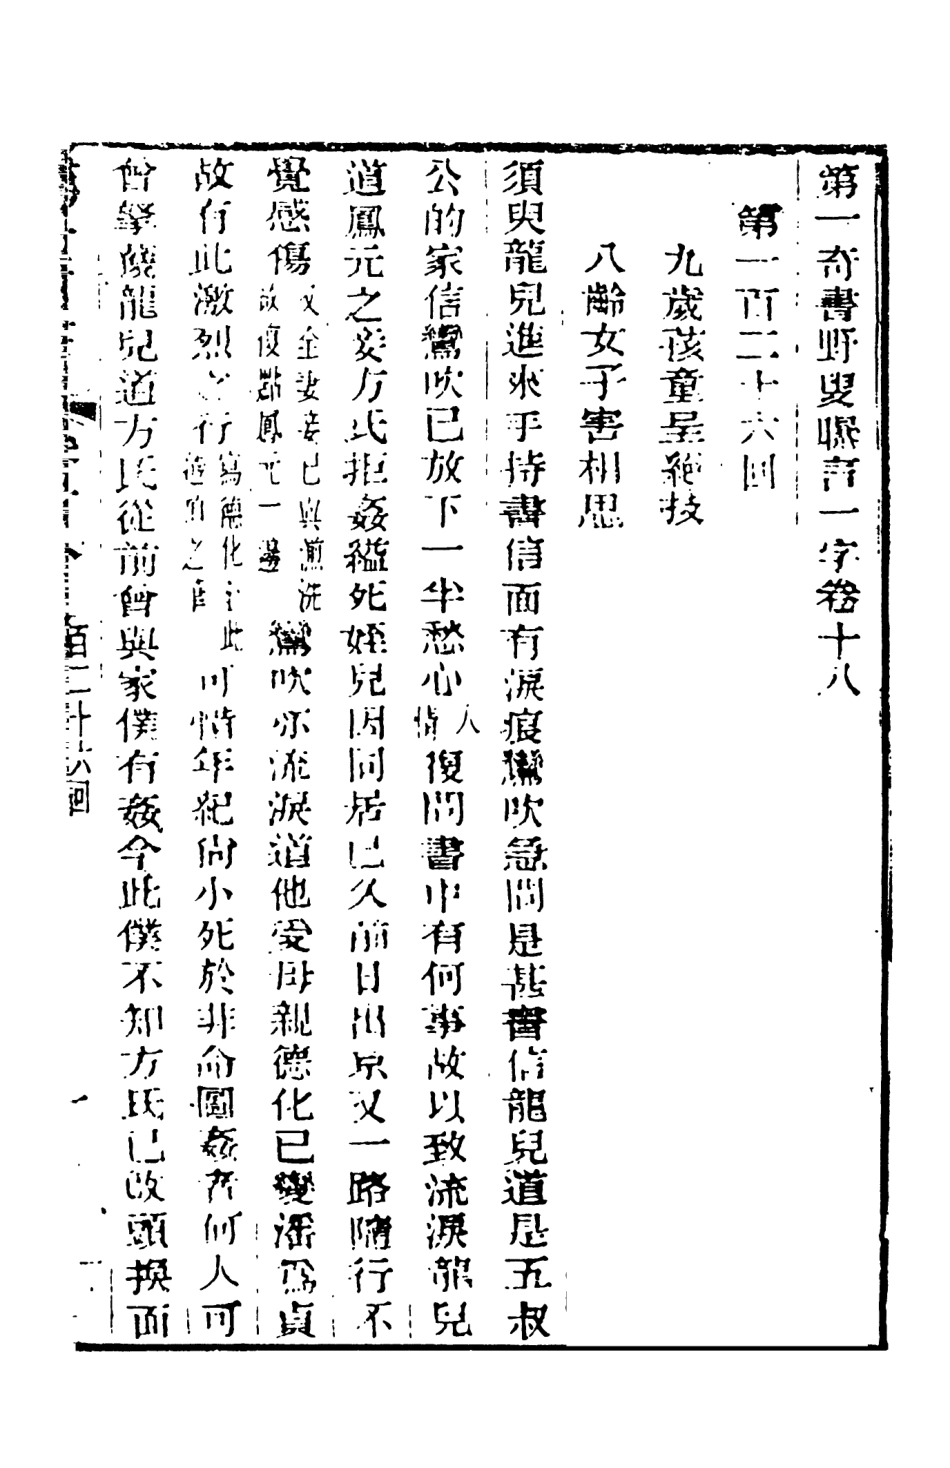 第一奇書野叟曝言一字卷十八
第一百二十六回
九歲孩童呈絕技
八齡女子害相思
須臾龍兒進來手持書信面有淚痕鸞吹急問是甚書信龍兒道是五叔
公的家信鸞吹已放下一半愁心人情復問書中有何事故以致流淚龍兒
道鳳元之妾方氏拒姦縊死姪兒因同居已久前日出京又一路隨行不
覺感傷文全妻妾已與湔洗故復點鳳元一邊鸞吹亦流淚道他受母親德化已變潘為貞
故有此激烈之行寫德化之此可惜年紀尚小死於非命圖姦者何人可
曾拏獲龍兒道方氏從前曾與家僕有姦今此僕不知方氏已改頭換面
百二十六回
一